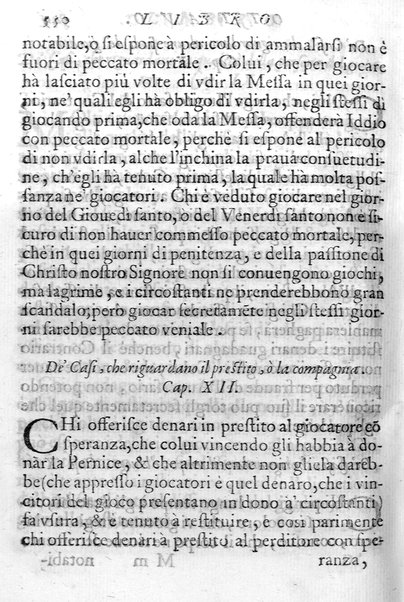 550 LIBRO
notabile, o si espone à pericolo di ammalarsi non è
fuori di peccato mortale. Colui, che per giocare
hà lasciato più volte di vdir la Messa in quei gior-
ni, ne' quali egli hà obligo di vdirla, negli stessi dì
giocando prima, che oda la Messa, offenderà Iddio
con peccato mortale, perchè si espone al pericolo
di non vdirla, al che l'inchina la praua consuetudi-
ne, ch'egli hà tenuto prima, la quale hà molta pos-
sanza ne' giocatori. Chi è veduto giocare nel gior-
no del Giouedì santo, o del Venerdì santo non è si-
curo di non hauer commesso peccato mortale, per-
chè in quei giorni di penitenza, e della passione di
Christo nostro Signore non si conuengono giochi,
ma lagrime, e i circostanti ne prenderebbono gran
scandalo, però giocar secretamēte negli stessi gior-
ni sarebbe peccato veniale.
De' Casi, che riguardano il prestito, ò la compagnia.
Cap. XII.
CHi offerisce denari in prestito al giocatore cō
speranza, che colui vincendo gli habbia à do-
nàr la Pernice, & che altrimente non gliela dareb-
be (che appresso i giocatori è quel denaro, che i vin-
citori del gioco presentano in dono à circostanti)
fà vsura, & è tenuto à restituire, e così parimente
chi offerisce denari à prestito al perditore con spe-
M m ranza,
notabi-